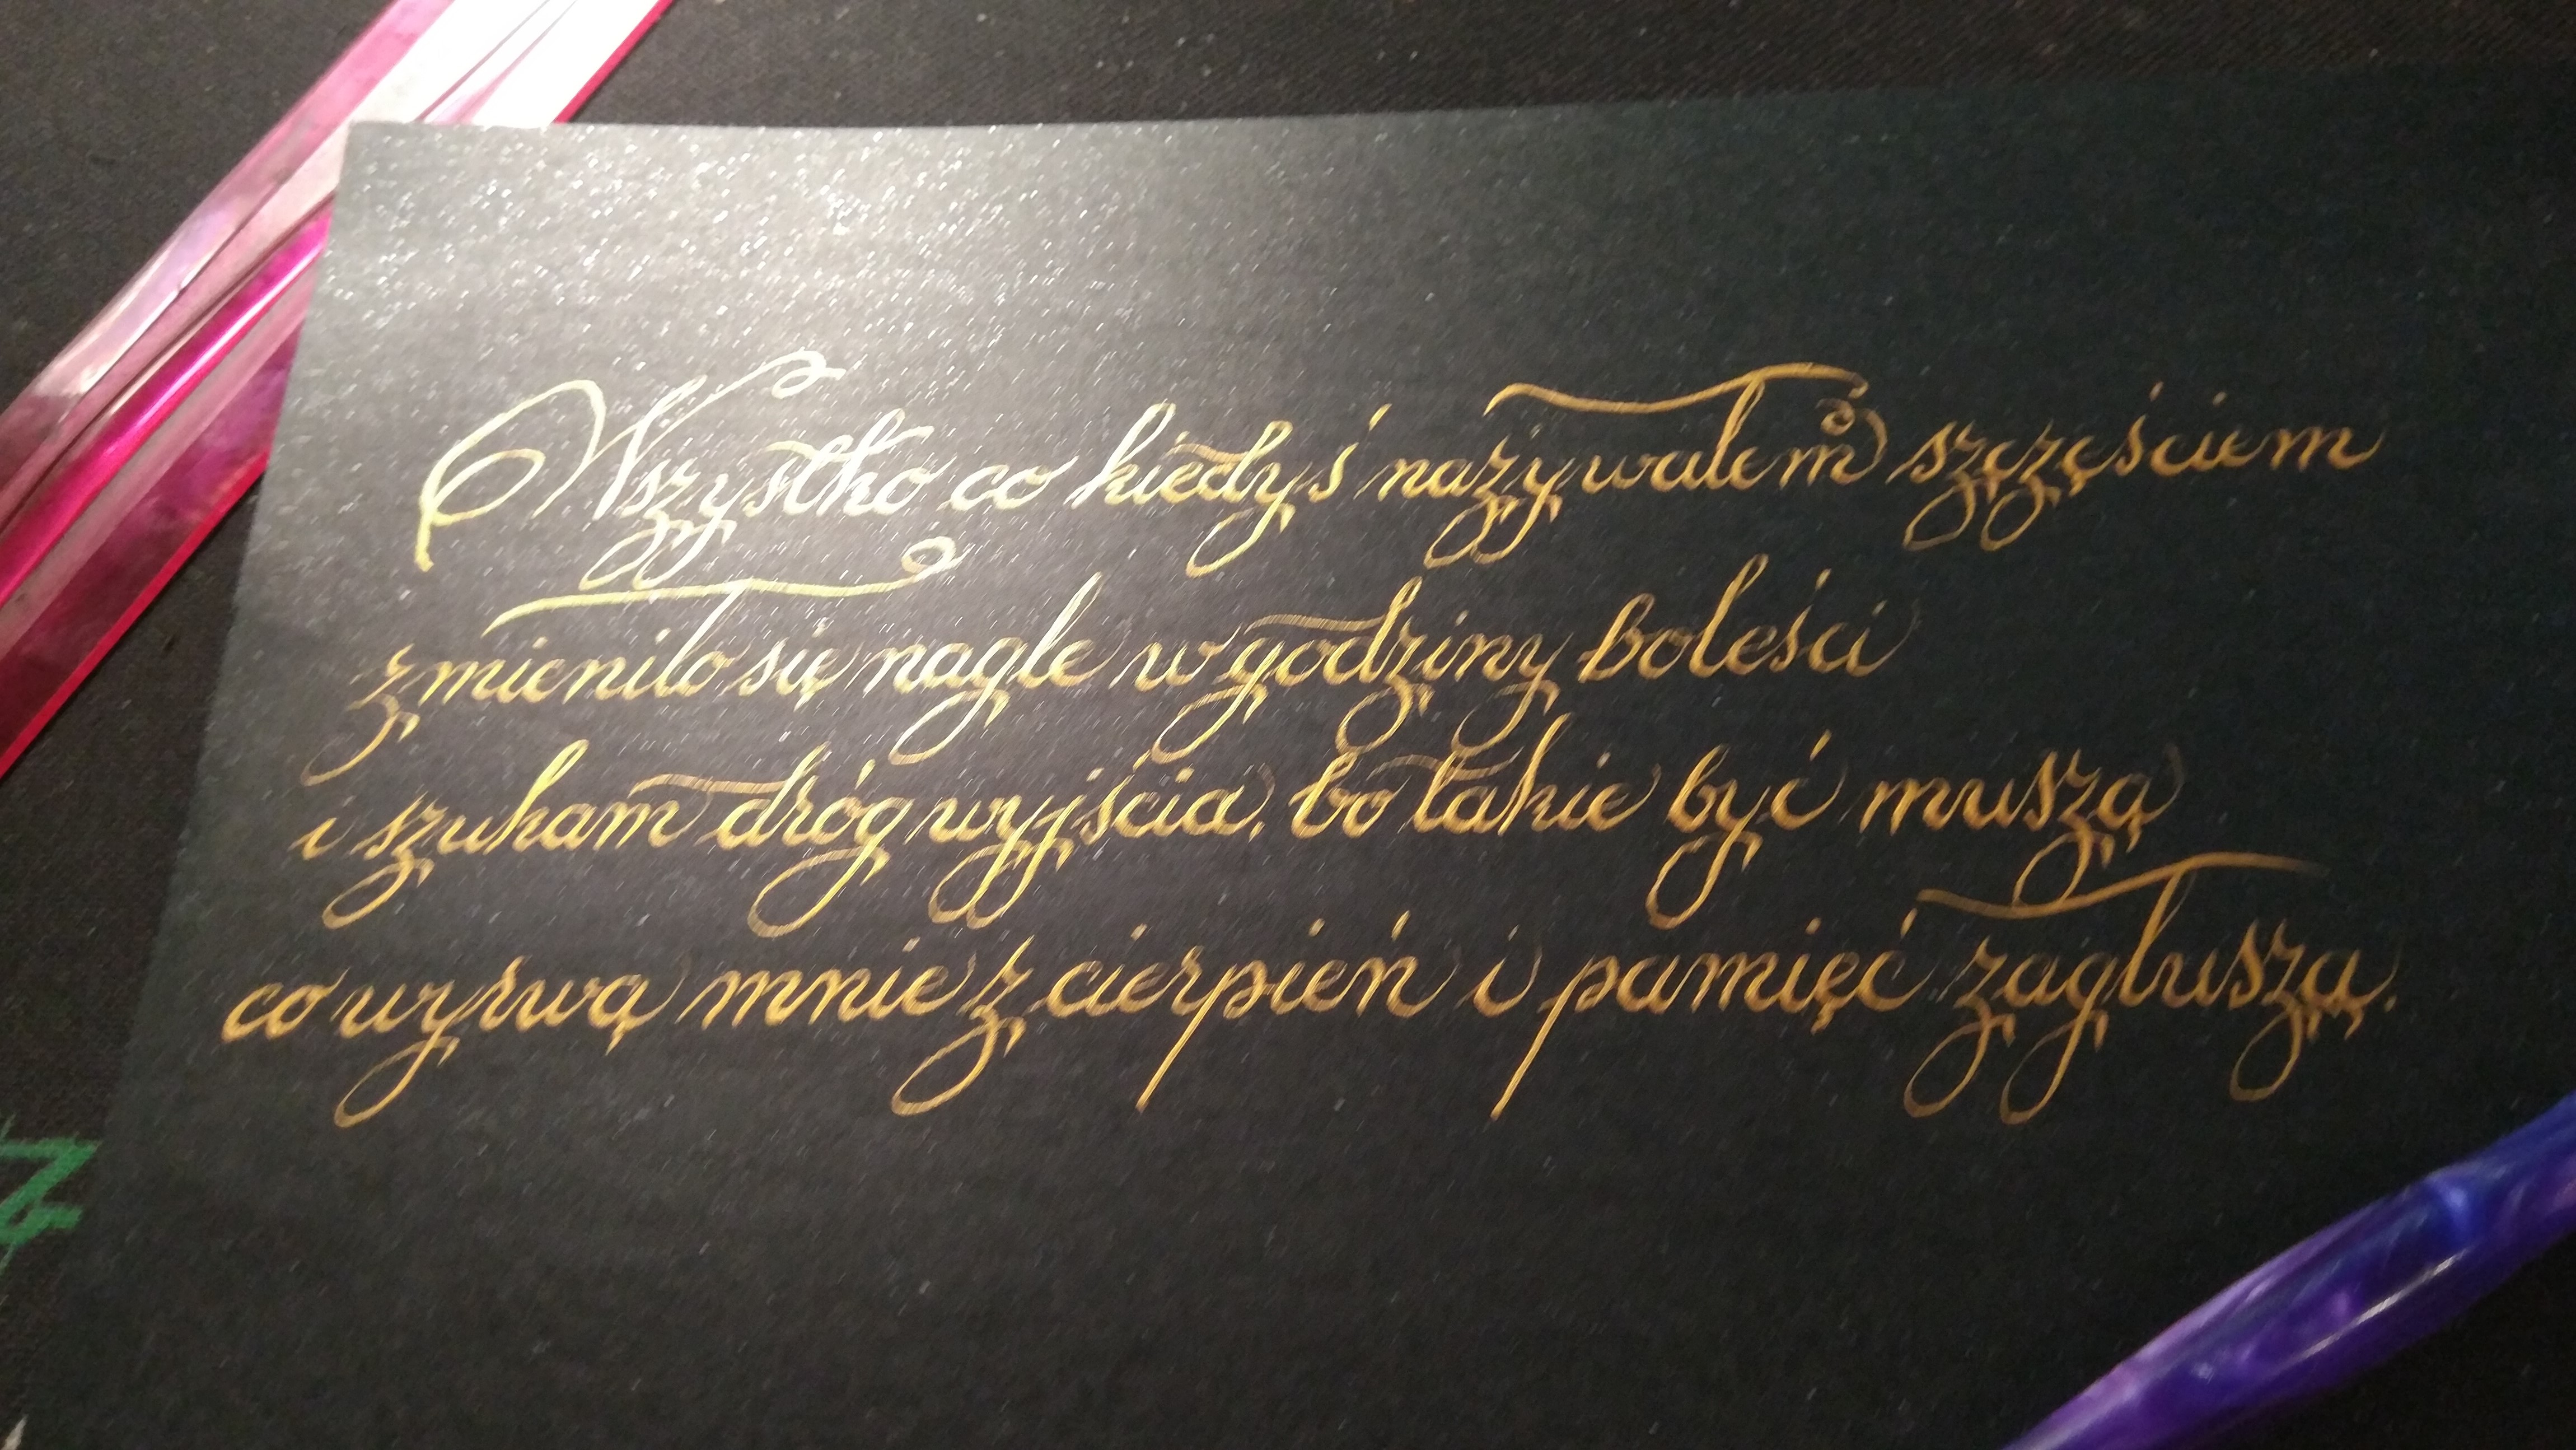 Wszystko co kiedyś nazywałem szczęściem
zmieniło się nagle w godziny boleści
i szukam dróg wyjścia, bo takie być muszą
co wyrwą mnie z cierpień i pamięć zagłuszą.